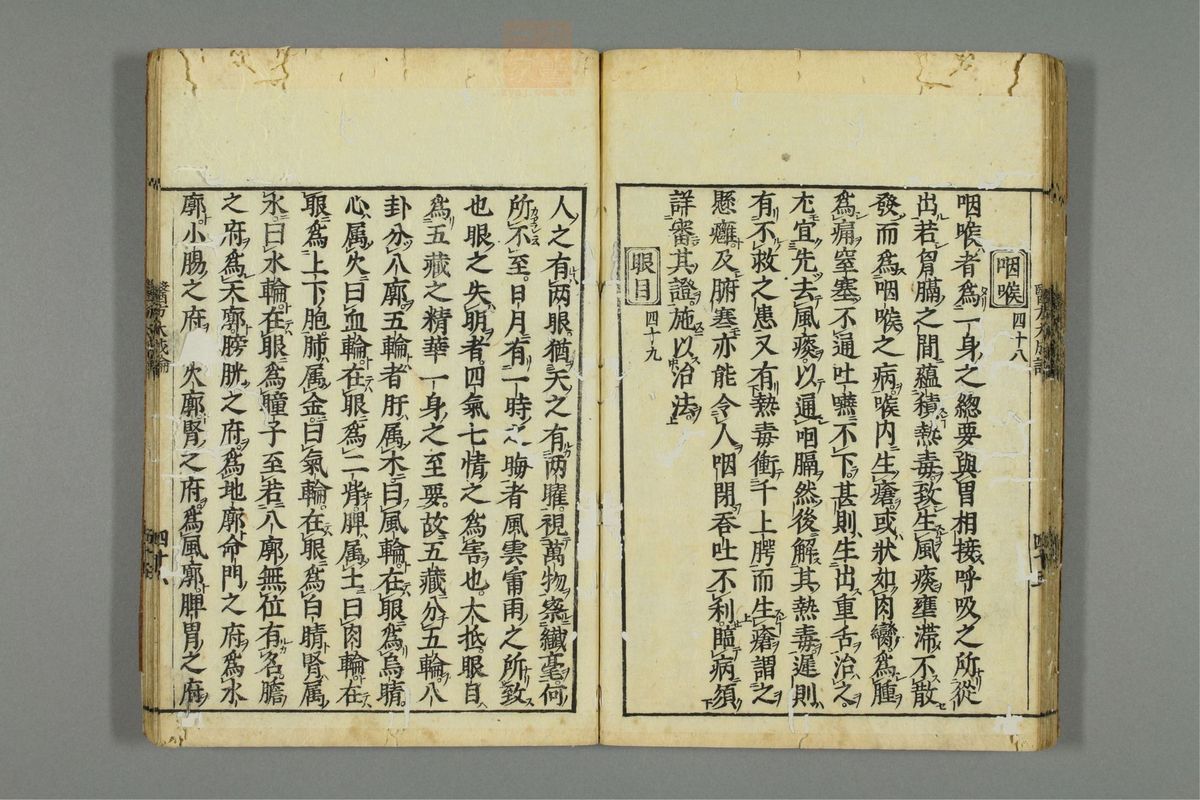 咽喉 四十八
咽喉者爲一身之總要與胃相接呼吸之所從
出若胃膈之間蘊積熱毒致生風痰壅滯不散
發而爲咽喉之病喉内生瘡或状如肉臠爲腫
爲痛窒塞不通吐嚥不下甚則生出重舌治之
尤宜先去風痰以通咽膈然後解其熱毒遲則
有不救之患又有熱毒衝于上腭而生瘡謂之
懸癰及腑寒亦能令人咽閉吞吐不利臨病須
詳審其證施以治法
眼目 四十九
人之有两眼猶天之有两曜視萬物察纖毫何
所不至日月有一時之晦者風雲雷雨之所致
也眼之失明者四氣七情之爲害也大抵眼目
爲五藏之精華一身之至要故五藏分五輪八
卦分八廓五輪者肝属木曰風輪在眼爲烏睛
心属火曰血輪在眼爲二眥脾属土曰肉輪在
眼爲上下胞肺属金曰氣輪在眼爲白睛腎属
水曰水輪在眼爲瞳子至若八廓無位有名膽
之府爲天廓膀胱之府爲地廓命門之府爲水
廓小腸之府 火廓腎之府爲風廓脾胃之府